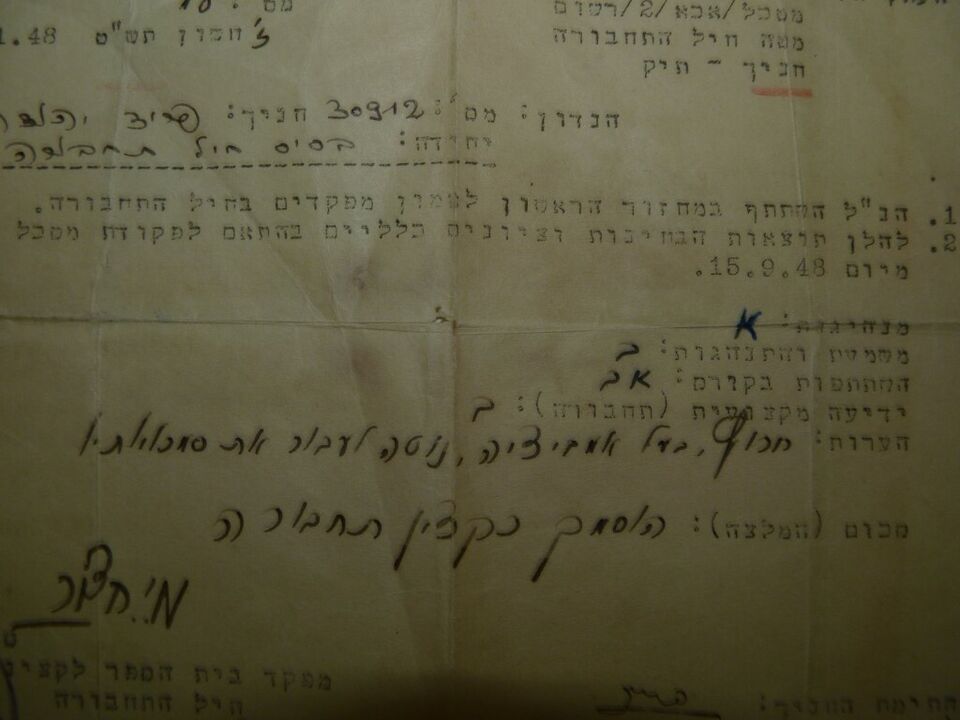 מטכל/אכא/2/רשום
מטה חיל התחבורה
חניך - תיק
מס : 10
ז' חשון תש"ט 1.48
הנדון: מס': 30912 חניך: פריד יהודה
יחידה: בסיס חיל תחבורה
1. הנ"ל השתתף במחזור הראשון לאמון מפקדים בחיל התחבורה.
2. להלן תוצאות הבחינות וציונים כלליים בהתאם לפקודת מטכל
מיום 15.9.48.
מנהיגות: א
משמעת והתנהגות: ב
השתתפות בקורס: אב
ידיעה מקצועית (תחבורה): ב
הערות: חרוץ, בעל אמביציה, נוטה לעבור את סמכויותיו
סכום (המלצה): הוסמך כקצין תחבורה
מפקד בית הספר לקציני
חיל התחבורה
חתימת החניך: